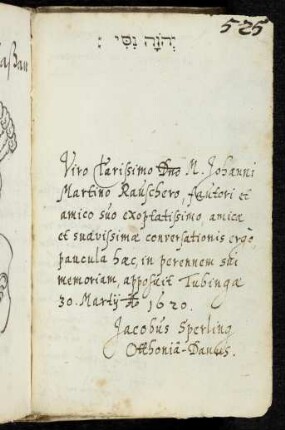 525
יְהוָֹה נִסִּי :
Viro Clarissimo Dno M. Johanni
Martino Rauschero, fautori et
amico suo exoptatissimo, amicæ
et suavissimæ conversationis ergò
paucula hæc, in perennem sui
memoriam, apposuit Tubingæ
30. Martij Ao 1620.
Jacobus Sperling
Otthoniâ-Danus.